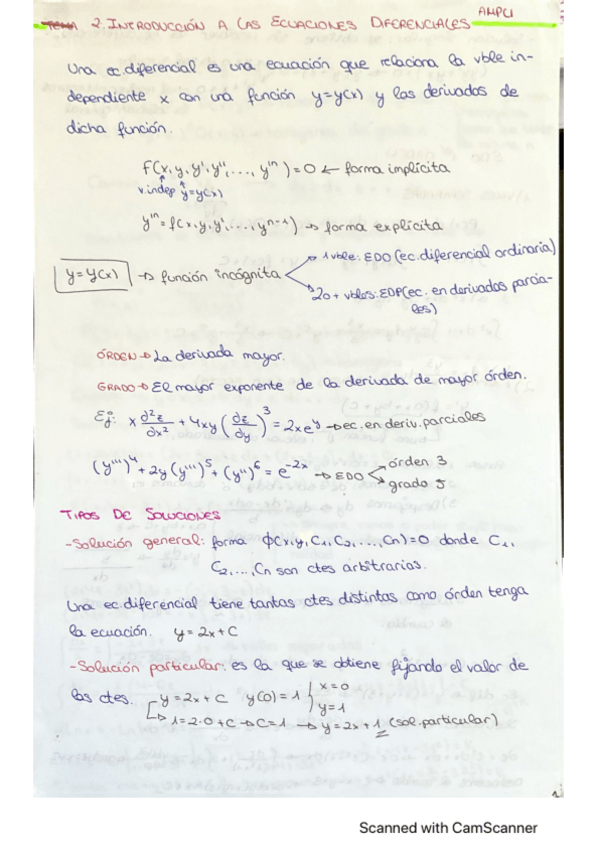 TEMA 2. INTRODUCCIÓN A LAS ECUACIONES DIFERENCIALES AMPLI
Una ec. diferencial es una ecuación que relaciona la vble in-
dependiente x con una función y=y(x) y las derivadas de
dicha función.
F(x,y,y',y'',...,y'ⁿ)=0 ← forma implícita
v.indep y=y(x)
y'ⁿ=f(x,y,y',...,yⁿ⁻¹) → forma explícita
y=y(x) → función incógnita
1 vble: EDO (ec. diferencial ordinaria)
2 o + vbles: EDP (ec. en derivadas parcia-
les)
ÓRDEN → La derivada mayor.
GRADO → El mayor exponente de la derivada de mayor órden.
Ej: x ∂²z/∂x² + 4xy (∂z/∂y)³ = 2xeʸ → ec. en deriv. parciales
(y''')⁴ + 2y(y''')⁵ + (y'')⁶ = e⁻²ˣ → EDO órden 3
grado 5
TIPOS DE SOLUCIONES
-Solución general: forma ϕ(x,y,C₁,C₂,...,Cn)=0 donde C₁,
C₂,...,Cn son ctes arbitrarias.
Una ec. diferencial tiene tantas ctes distintas como órden tenga
la ecuación. y = 2x + C
-Solución particular: es la que se obtiene fijando el valor de
las ctes. y = 2x + C y(0) = 1 x = 0
y = 1
1 = 2·0 + C → C = 1 → y = 2x + 1 (sol. particular)
Scanned with CamScanner